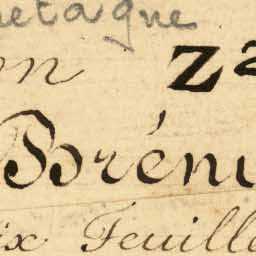 retagne
on Za
Bréni
ix Feuille